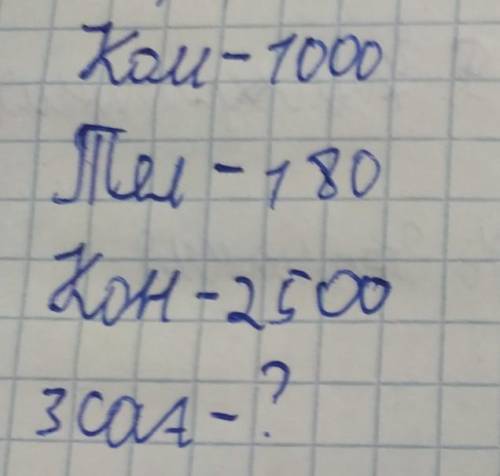 Ком - 1000
Тел - 180
Кон - 2500
3 сал - ?